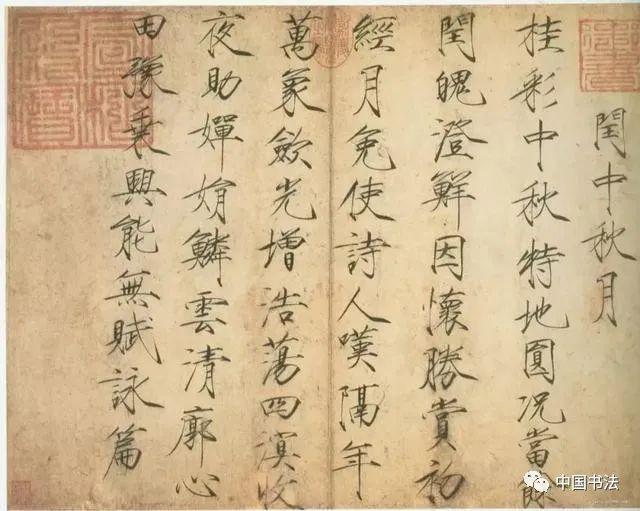 閏中秋月
桂彩中秋特地圓況當餘
閏魄澄鮮因懷勝賞初
經月免使詩人嘆隔年
萬象歛光增浩蕩四溟收
夜助嬋娟鱗雲清廓心
田豫乗興能無賦詠篇
中国书法